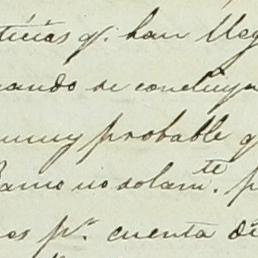 ticias q. han lleg
ando se concluya
muy probable q
Ramo no solam.te p
es p.r cuenta de